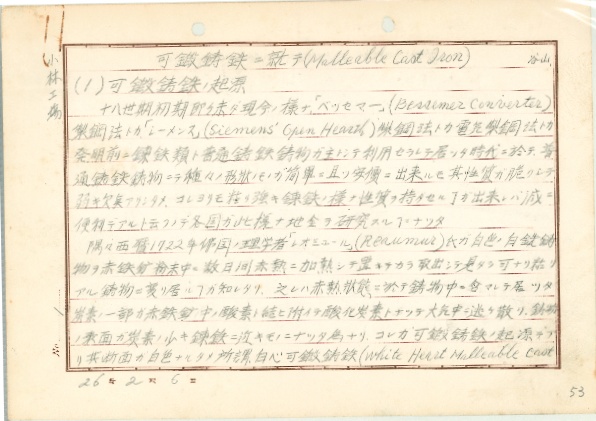 小林工場
可鍛鋳鉄ニ就テ(Malleable Cast Iron)
谷山
(1)可鍛鋳鉄ノ起源
十八世期初期即チ未ダ現今ノ様ナ「ベッセマー」(Bessemer Converter)
製鋼法トカ「シーメンス」(Siemens' Open Hearth)製鋼法トカ電気製鋼法トカ
発明前ニ錬鉄類ト普通鋳鉄鋳物ガ主トシテ利用セラレテ居ッタ時代ニ於テ、普
通鋳鉄鋳物ニテ種々ノ形状ノモノガ簡単ニ且ツ安価ニ出来ルモ其性質ガ脆ク
コレヨリモ粘リ強キ錬鉄ノ様ナ性質ヲ持タセル了ガ出来レバ誠ニ
便利デアルト云フノデ各国ガ此様ナ地金ヲ研究スル了ニナッタ
偶々西暦1722年佛国ノ理学者「レオミュール」(Reaumur)氏ガ白色ノ白銑鋳
物ヲ赤鉄鉱粉末中ニ数日間赤熱ニ加熱シテ置イテカラ取出シテ見タラ可ナリ粘リ
アル鋳物ニ変リ居ル了ガ知レタリ、之レハ赤熱状態ニ於テ鋳物中ニ含マレテ居ッタ
炭素ノ一部ガ赤鉄鉱中ノ酸素ト結ビ附イテ酸化炭素トナッテ大気中ニ逃ゲ散リ、鋳物
ノ表面ガ炭素ノ少キ錬鉄ニ次キモノニナッタ為ナリ、コレガ可鍛鋳鉄ノ起源デア
リ其断面ガ白色ナルタメ所謂白心可鍛鋳鉄(White Heart Malleable Cast
No.
26年2月6日
53